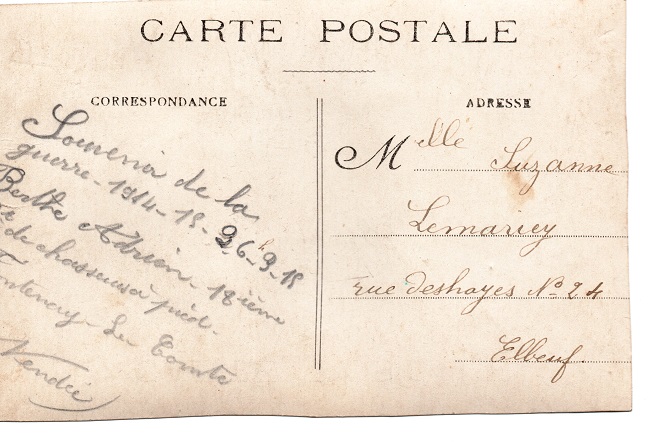 CARTE POSTALE
CORRESPONDANCE
Souvenir de la
guerre - 1914 - 15 - 26-9-15
Berthe Adrien - 18 ième
de chasseurs à pied -
Fontenay - Le Comte
Vendée
ADRESSE
Melle Suzanne
Lemariey
rue Deshayes No 24
Elbeuf